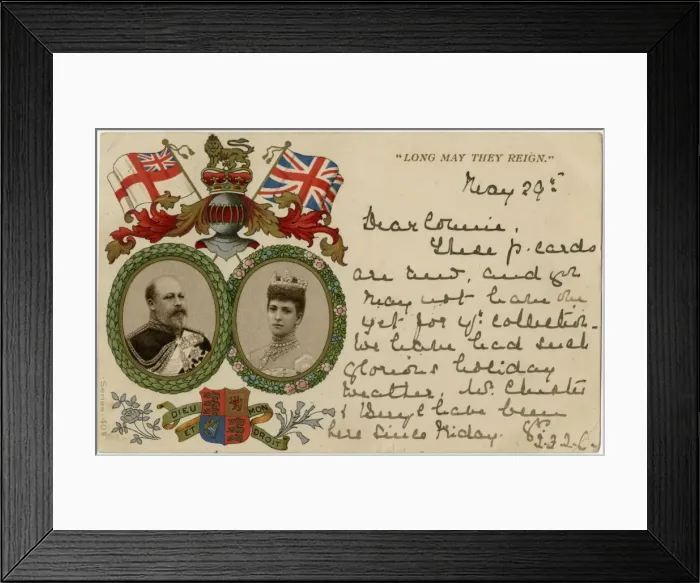 "LONG MAY THEY REIGN."
May 29th
Dear Connie,
These p. cards
are new, and you
may not have one
yet for yr collection.
We have had such
glorious holiday
weather. Mr. Chester
& Beryl have been
here since Friday.
DIEU ET MON DROIT
Series 404